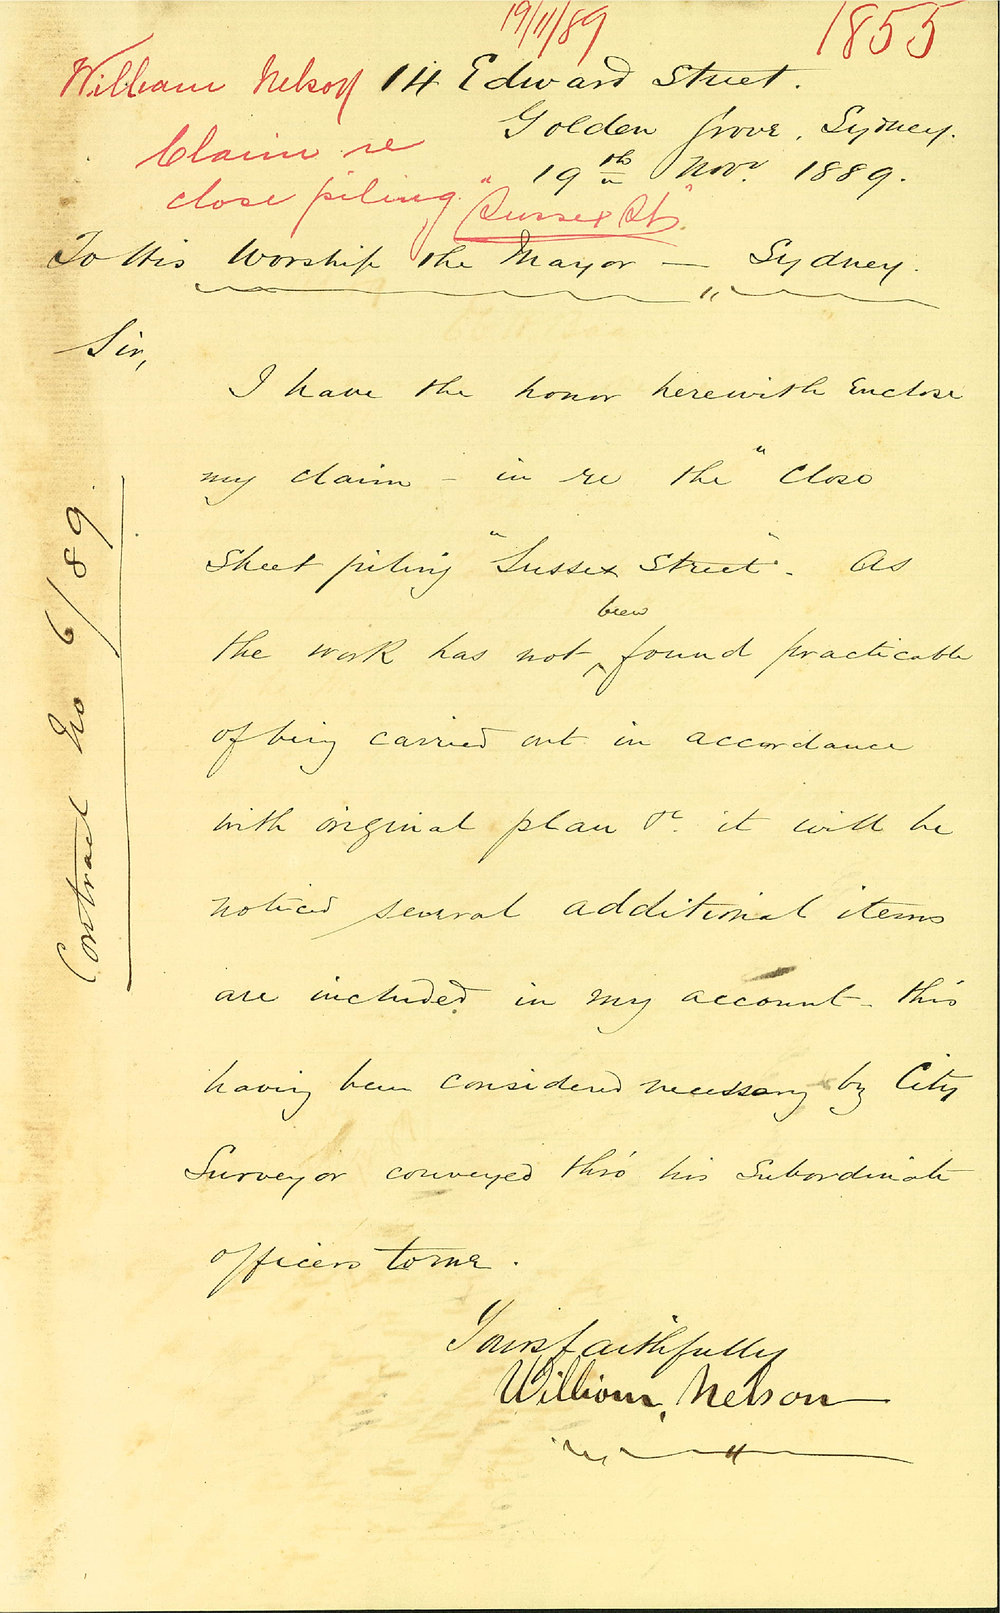 19/11/89
1855
William Nelson 14 Edward Street.
Golden Grove, Sydney.
Claim re
19th Novr. 1889.
close piling "Sussex St."
To His Worship the Mayor — Sydney.
Sir,
I have the honor herewith Enclose
my claim - in re the "Close
Sheet piling "Sussex Street". As
been
the work has not ‸ found practicable
of being carried out in accordance
with original plan &c. it will be
noticed several additional items
are included in my account - this
having been considered necessary by City
Surveyor conveyed thro' his Subordinate
officers to me.
Yours faithfully
William Nelson
Contract No 6/89